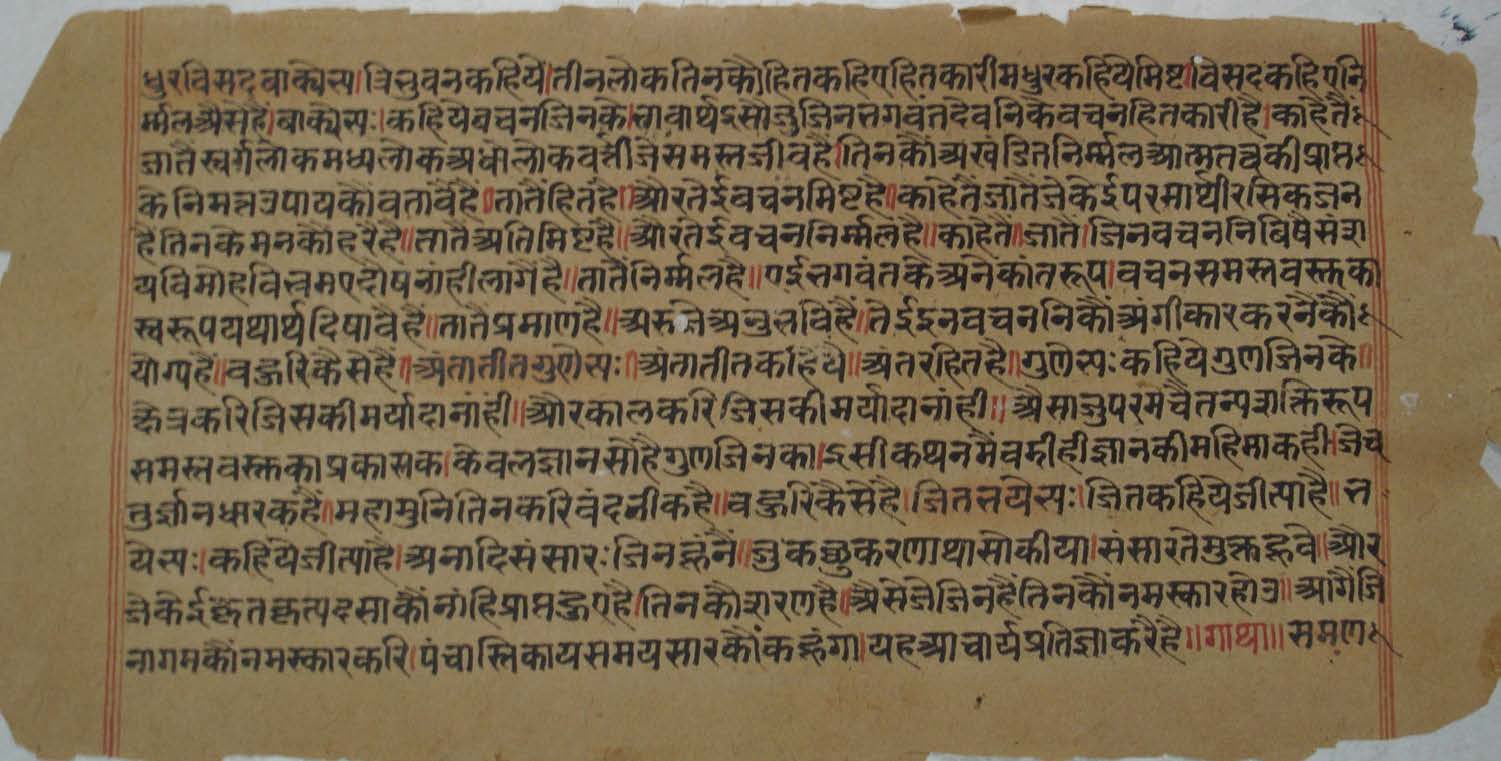 धुरविसदवाक्येस्य।त्रिभुवनकहियें।तीनलोकतिनकौंहितकहिएहितकारीमधुरकहियेमिष्ट।विसदकहिएनि
र्म्मलअैसेहैं।वाक्येस्यः।कहियेवचनजिनके।भावार्थइसौजुजिनभगवंतदेवनिकैवचनहितकारीहै।काहेतैं
जातैस्वर्गलोकमध्यलोकअधोलोकवर्त्तीजेसमस्तजीवहै।तिनकौंअखंडितनिर्म्मलआत्मतत्वकीप्राप्त
केनिमत्तउपायकौंवतावैंहै॥तातैहितहै॥औरतेईवचनमिष्टहै॥काहेतैंजातैंजेकेईपरमार्थीरसिकजन
हैतिनकेमनकौंहरैहै॥तातैअतिमिष्टहै॥औरतेईवचननिर्म्मलहै॥काहेतैं॥जातैं।जिनवचननिबिषैसंश
यविमोहविभ्रमएदोषनांहीलागैंहै॥तातैंनिर्म्मलहै॥एईभगवंतकेअनेकांतरूप।वचनसमस्तवस्तुका
स्वरूपयथार्थदिषावैहैं॥तातैप्रमाणहै॥अरुजेअनुभविहैं॥तेईइनवचननिकौंअंगीकारकरनैकौं
योग्यहैं॥वहुरिकैसेहै॥अंतातीतगुणेस्यः॥अंतातीतकहिये॥अंतरहितहै॥गुणेस्यःकहियेगुणजिनके॥
क्षेत्रकरिजिसकीमर्यादानांही॥औरकालकरिजिसकीमर्यादानांही॥अैसाजुपरमचैतन्यशक्तिरूप
समस्तवस्तुकाप्रकासक।केवलज्ञानसौहैगुणजिनका।इसीकथनमैंवहीहीज्ञानकीमहिमाकही।जेच
तुर्ज्ञानधारकहैं॥महामुनितिनकरिवंदनीकहै॥वहुरिकैसेहै।जितभयेस्यः।जितकहियेजीत्याहै॥भ
येस्यः।कहियेजीत्याहै।अनादिसंसारःजिनहूंनैं॥जुकछुकरणाथासोकीया।संसारतेमुक्तहूवे॥और
जेकेईकृतकृत्यदसाकौंनांहिप्राप्तहुएहै।तिनकौशरणहै॥अैसेजेजिनहैंतिनकौंनमस्कारहोउ॥आगैंजि
नागमकौंनमस्कारकरि।पंचास्तिकायसमयसारकौंकहूंगा।यहआचार्यप्रतिज्ञाकरैहै॥गाथा॥समण